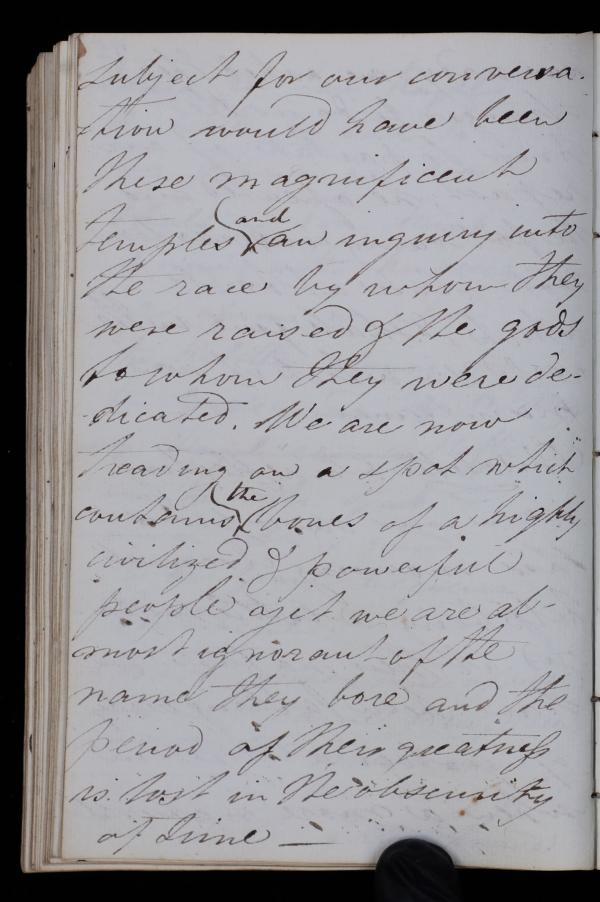 subject for our conversa-
tion would have been
these magnificent
temples and an inquiry into
the race by whom they
were raised & the gods
to whom they were de-
-dicated. We are now
treading on a spot which
contains the bones of a highly
civilized & powerful
people & yet we are al-
most ignorant of the
name they bore and the
period of their greatness
is lost in the obscurity
of time —